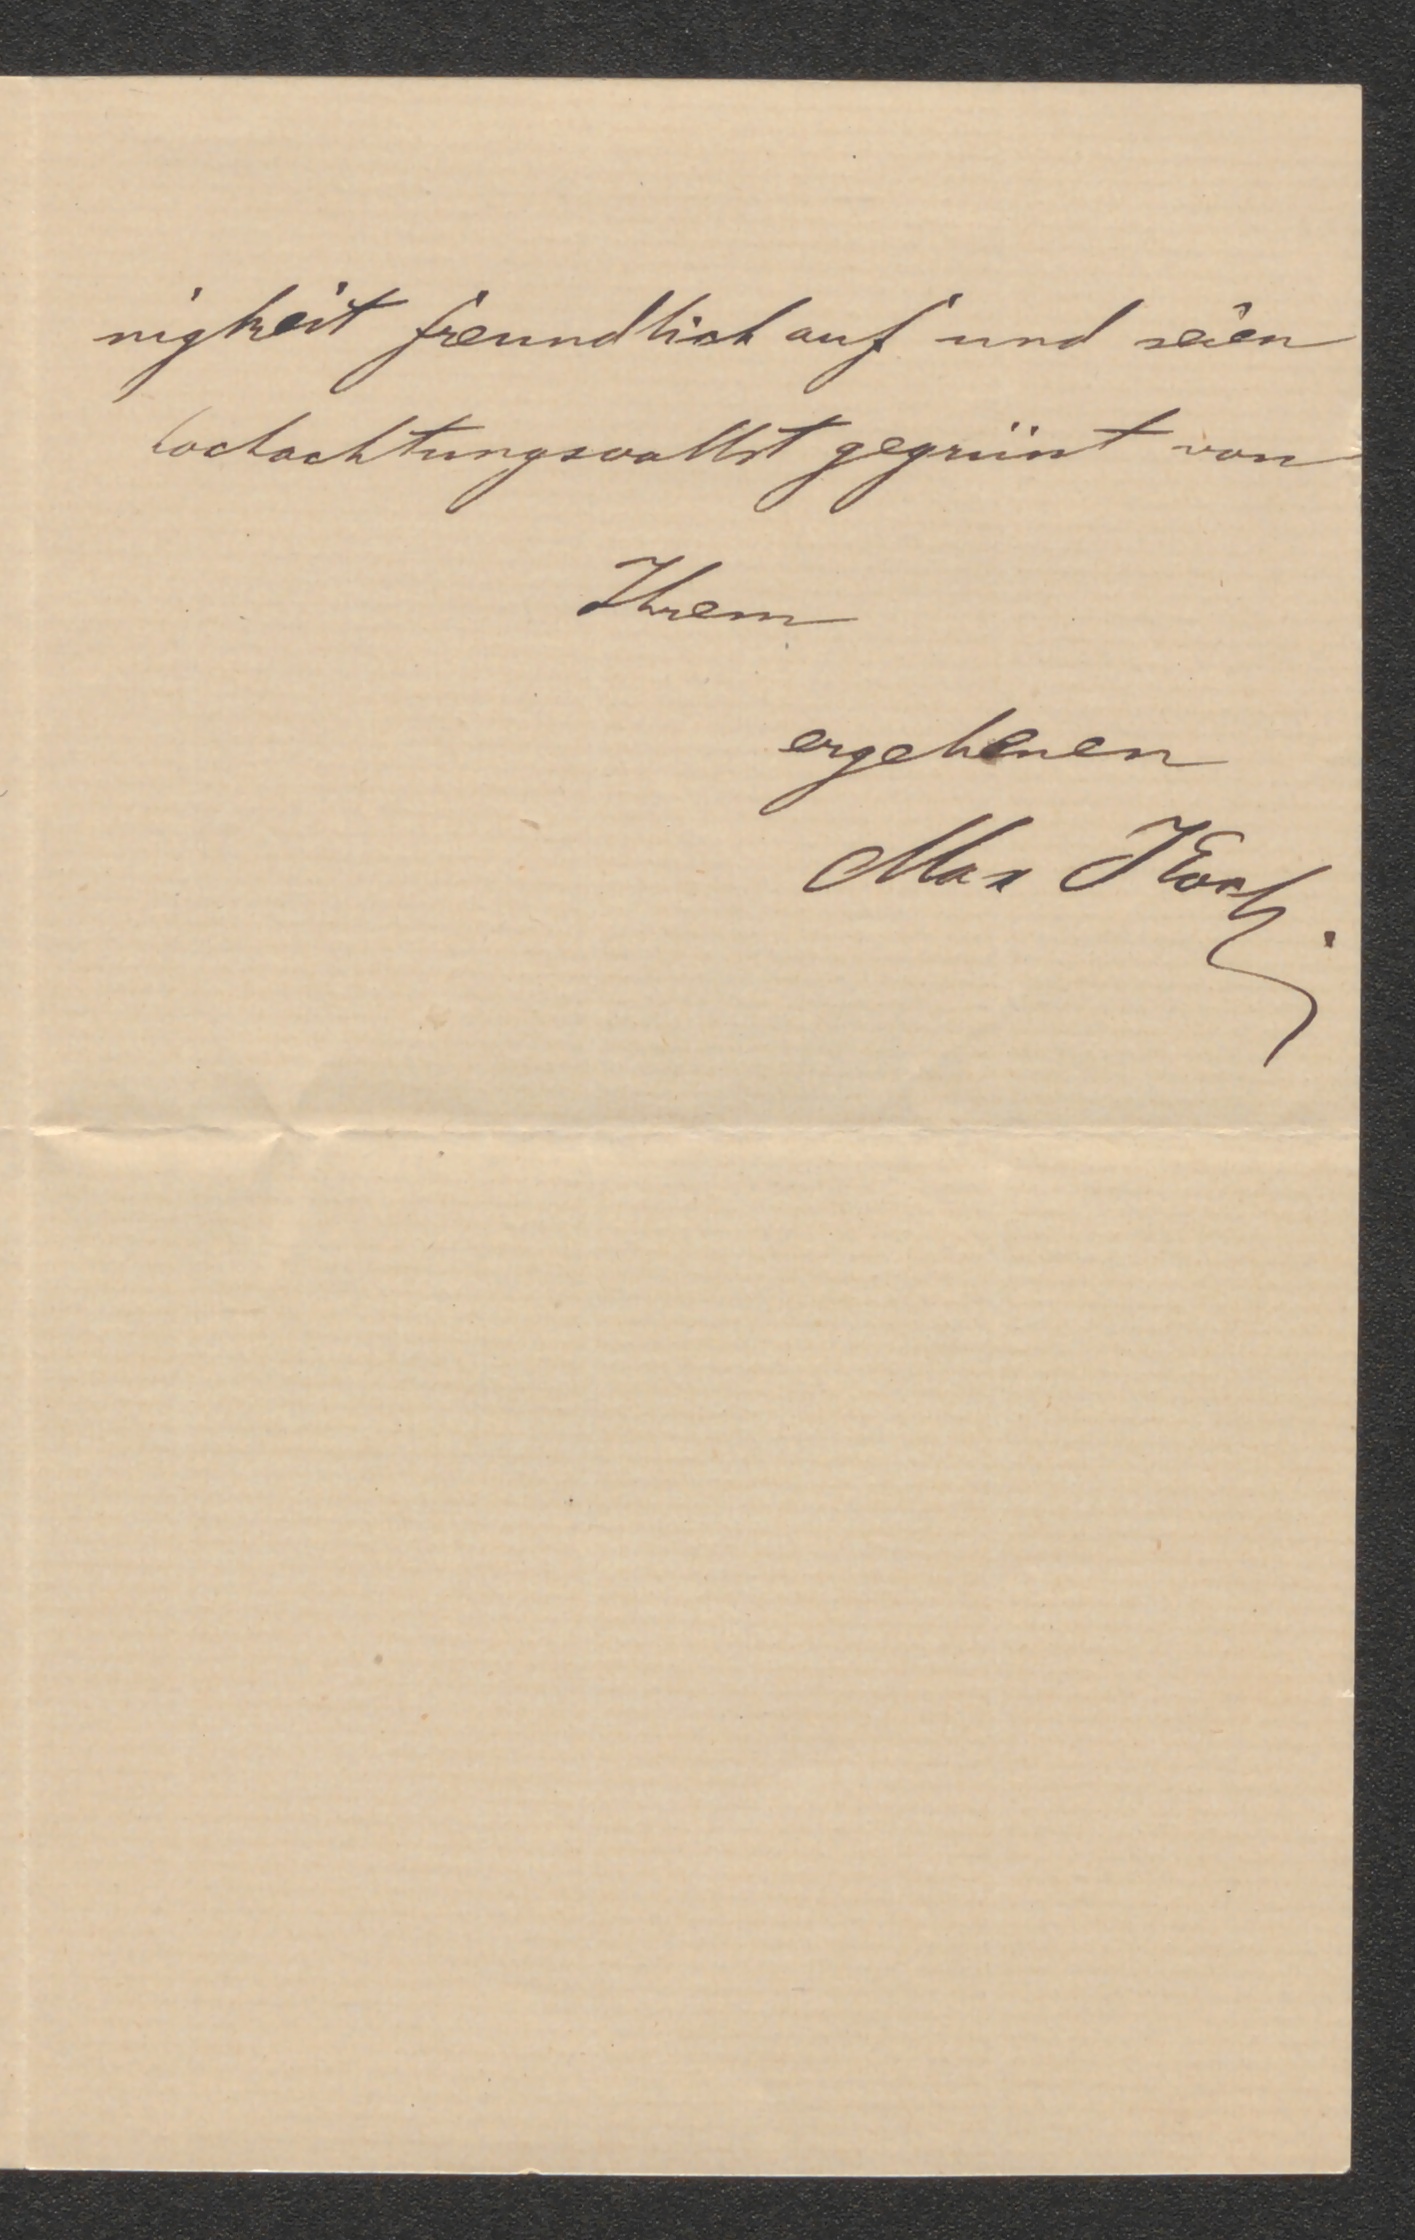 nigkeit freundlich auf und seien
hochachtungsvollst gegrüsst von
Ihrem
ergebenen
Max Koch.